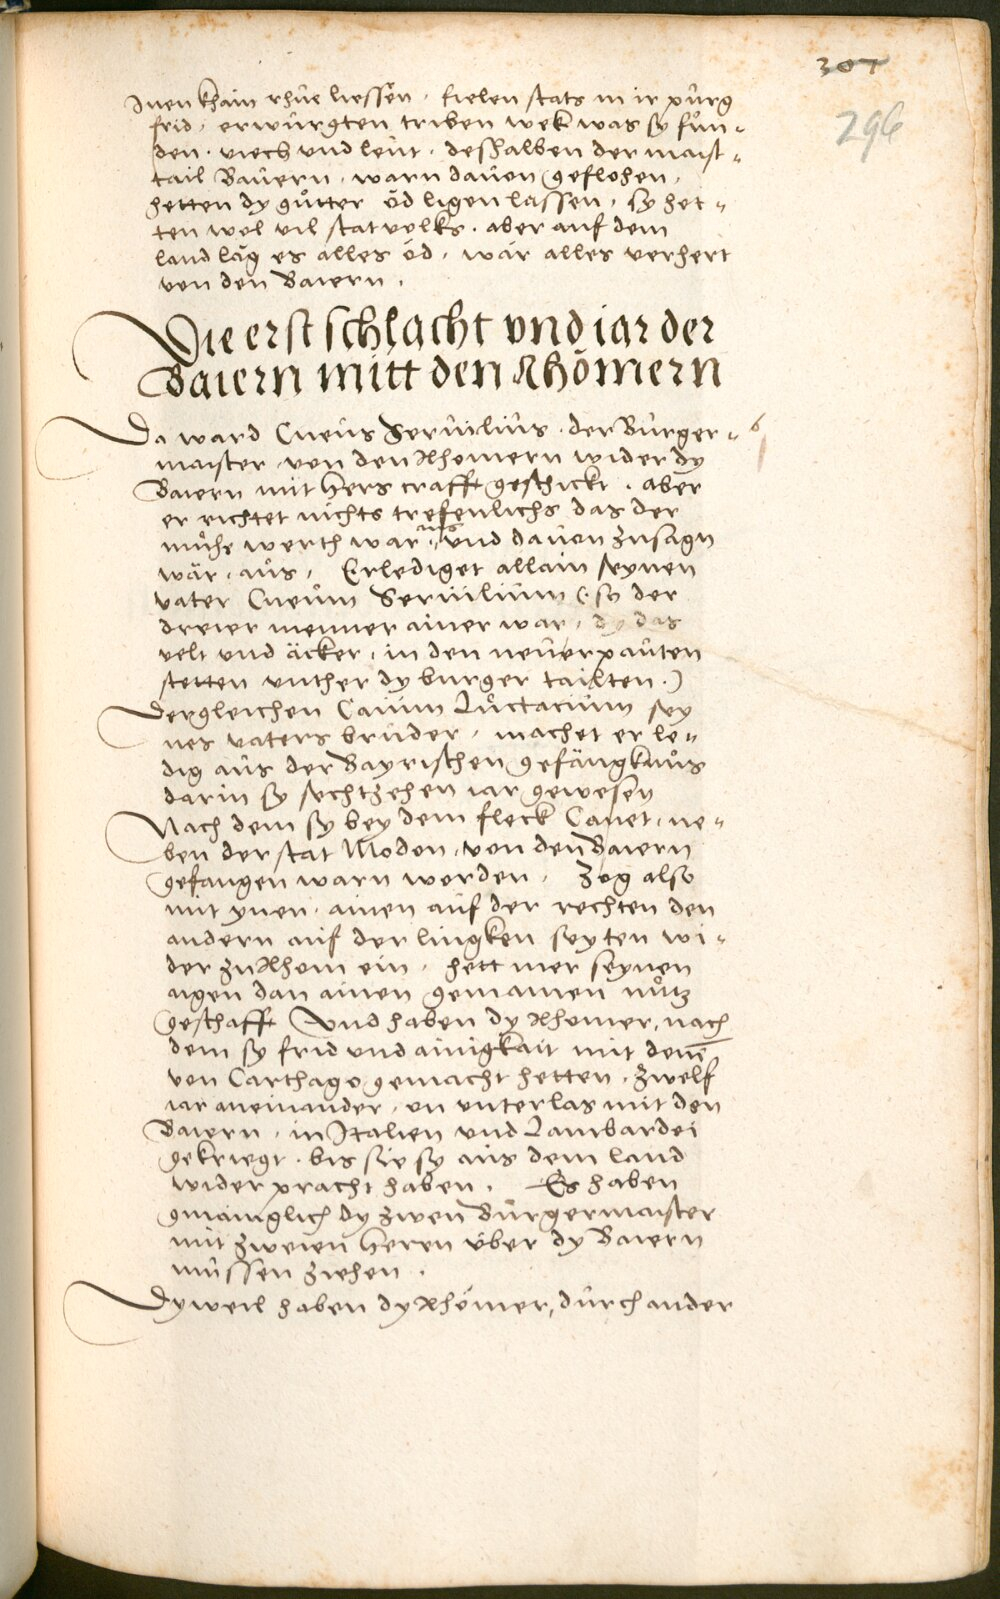 307
296
Inen khain rhůe liessen, fielen stats in ir purg
frid, erwůrgten triben wek was sy fůn-
den, viech vnd leüt, deßhalben der maist-
tail Baüern, warn daüon geflohen,
hetten dy gůtter öd ligen lassen, sy het-
ten wol vil statuolks, aber auf dem
land läg es alles öd, wär alles verhert
von den Baiern.
Die erst schlacht vnd iar der
Baiern mitt den Rhömern
Da ward Cneüs Seruilius, der Bürger-
maister von den Rhomern wider dy
Baiern mit hers crafft geschickt, aber
er richtet nichts trefenlichs das der
můhe werth war, vnd dauon zusagn
wär, aůs, Erlediget allain seynen
vater Cneüm Seruilium (so der
dreier menner ainer war, dy das
velt vnd äcker, in den neüerpaůten
stetten vnther dy burger tailten.)
Dergleichen Caium Lůctacium sey
nes vaters brůder, machet er le-
dig aůs der Bayrischen gefängknůs
darin sy sechtzehen iar gewesen
Nach dem sy bey dem fleck Canet, ne-
ben der stat Modon, von den Baiern
gefangen warn worden, Zog also
mit ynen, ainen auf der rechten den
andern auf der lingken seyten wi-
der zu Rhom ein, hett mer seynen
aigen dan ainen gemainen nůtz
geschafft Vnd haben dy Rhomer, nach
dem sy frid vnd ainigkait mit denē
von Carthago gemacht hetten, zwelf
iar aneinander, on vnterlas mit den
Baiern, in Italien vnd Lambardei
gekriegt, bis sie sy aus dem land
wider pracht haben, Es haben
gmainglich dy zwen Bürgermaister
mit zweien heren über dy Baiern
müssen ziehen.
Dyweil haben dy Rhömer, důrch ander